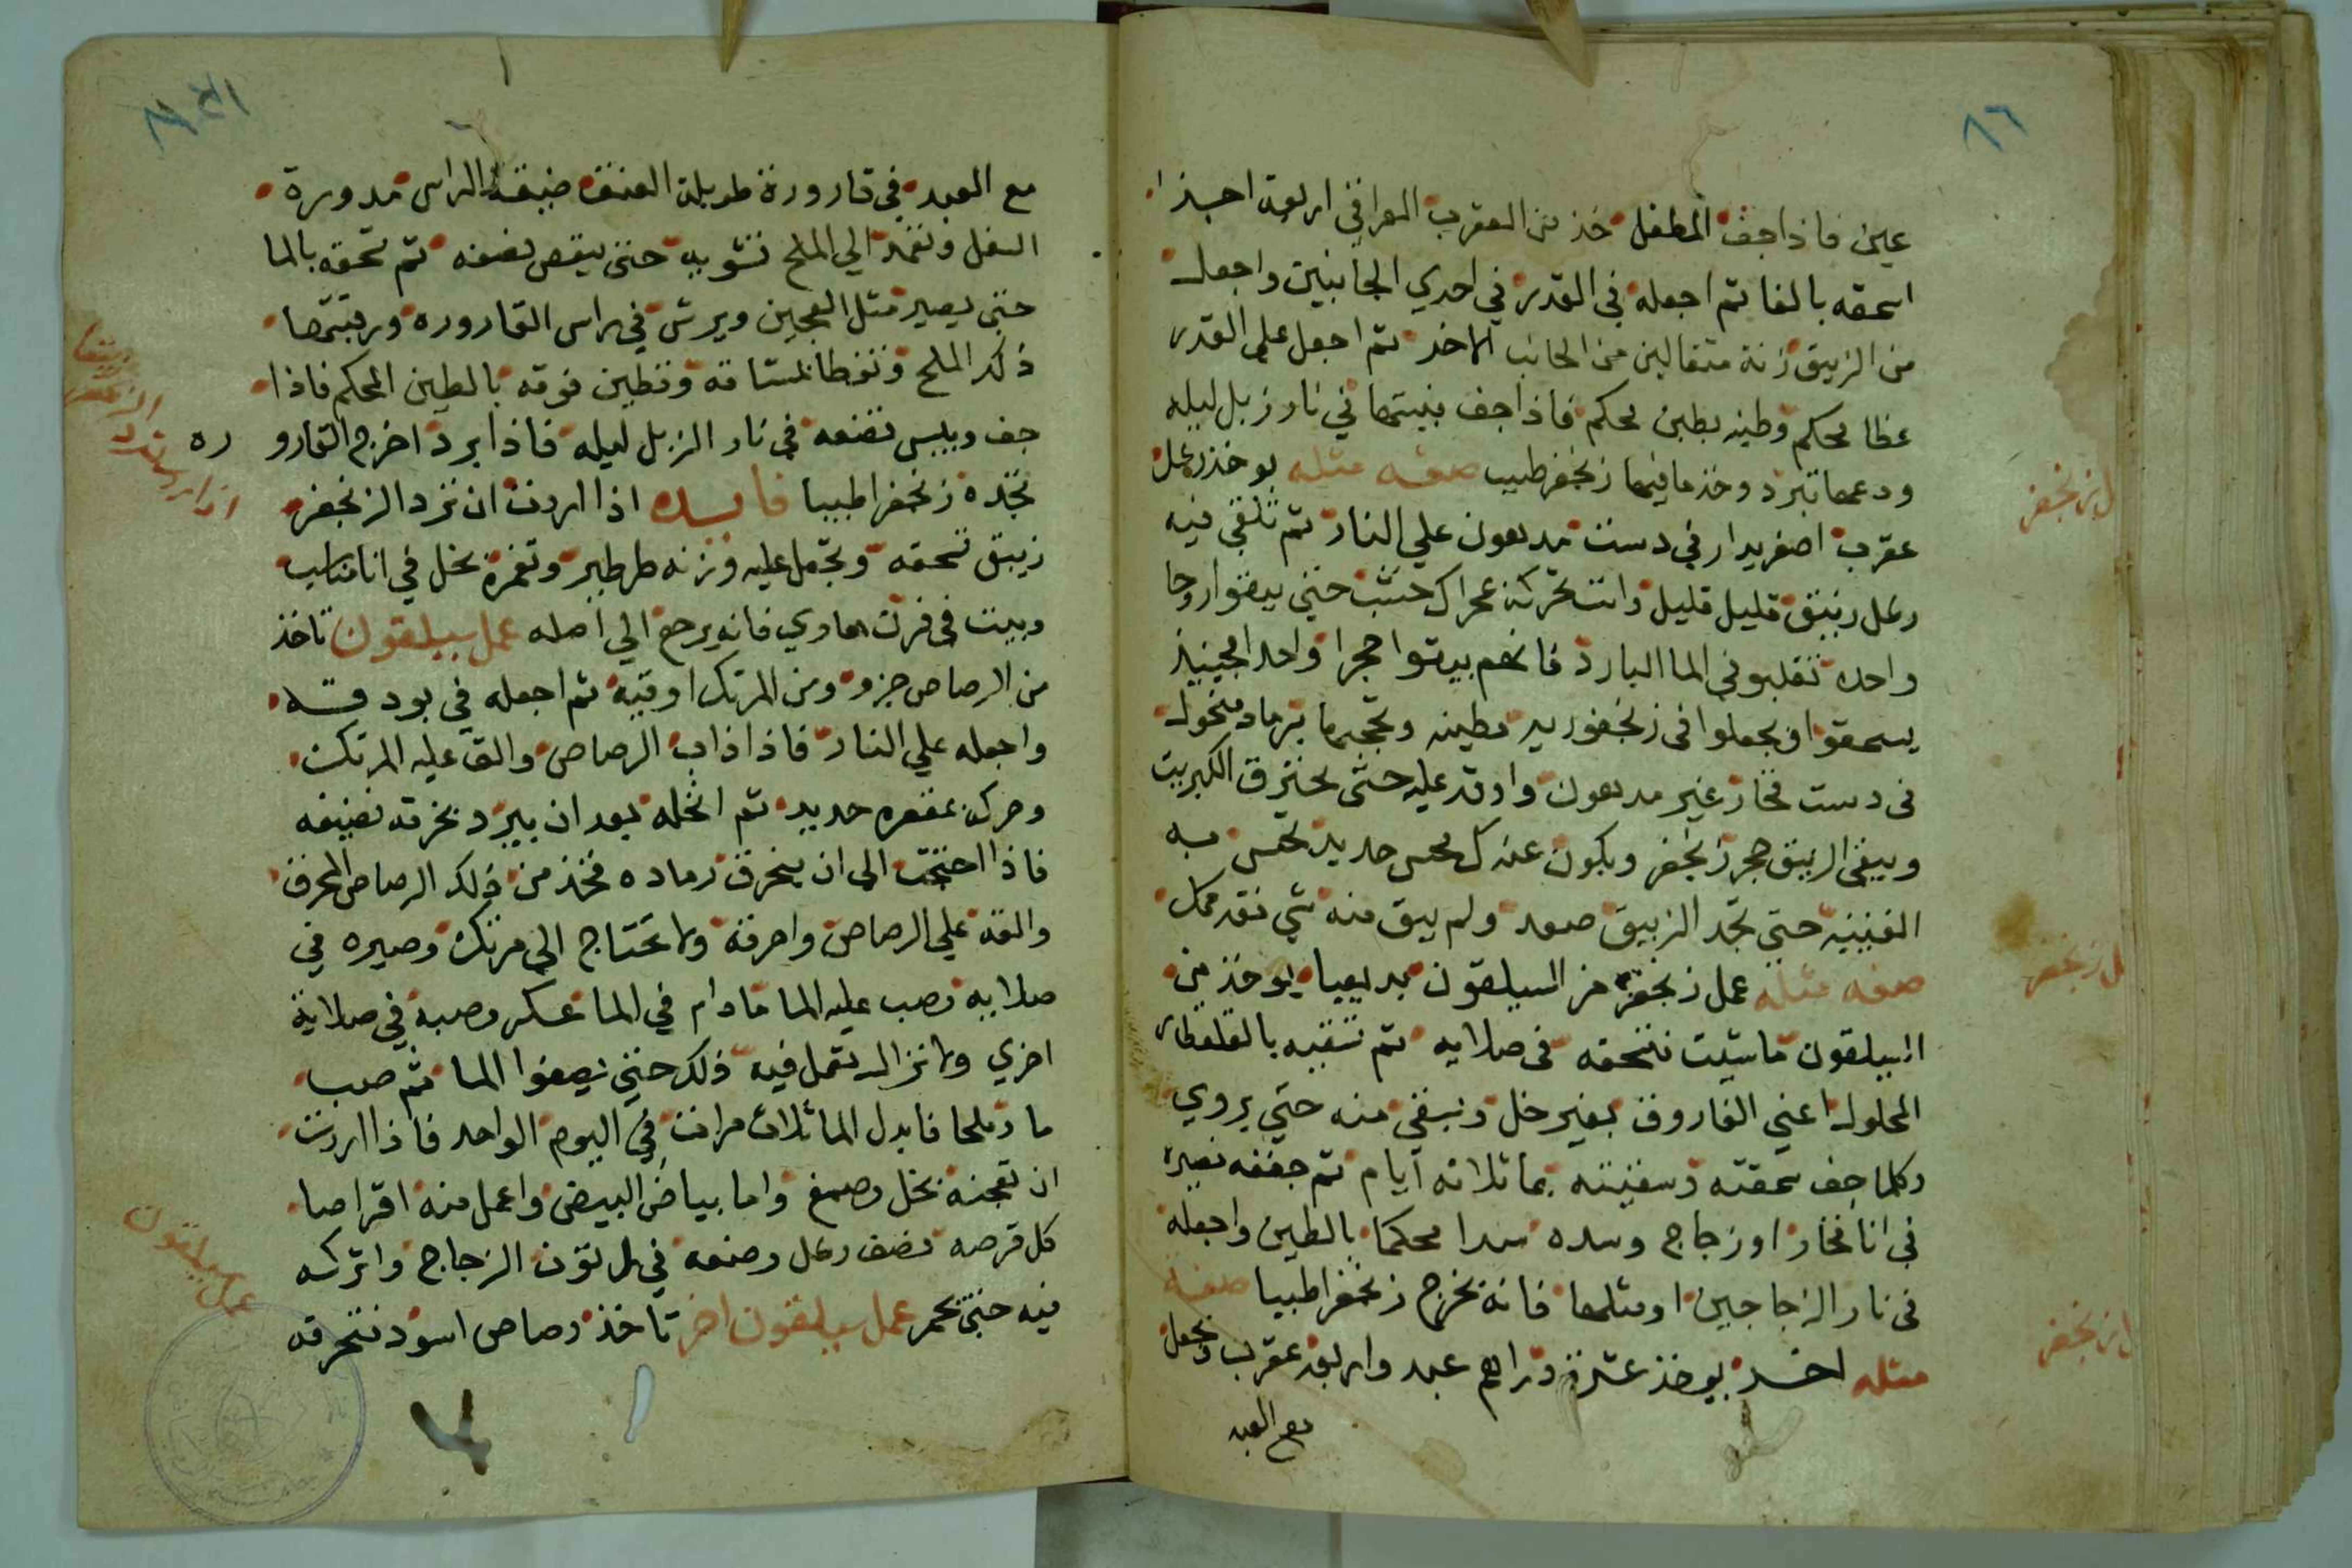 ٨٦
عين فاذا جف المطفل خذ من العقرب العراقي اربعة اجزا
اسحقه بالغا ثم اجعله في القدر في احدي الجانبين واجعل
من الزيبق زنة مثقالين من الجانب الاخر ثم اجعل علي القدر
غطا محكم وطينه بطين محكم فاذا جف بيتها في نار زبل ليله
ودعها تبرد وخذ ما فيها زنجفر طيب صفه مثله يوخذ رطل
عقرب اصفر يدار في دست مدهون علي النار ثم تلقي فيه
رطل زيبق قليل قليل وانت تحركه بمحراك خشب حتي يبقوا روحا
واحده تقلبو في الما البارد فانهم يبقوا حجرا واحدا فحينيذ
يسحقوا ويجعلوا في زنجفوريه مطينه وتحجبها برماد منخول
في دست فخار غير مدهون واوقد عليه حتي يحترق الكبريت
ويبقي الزيبق حجر زنجفر ويكون عندك محس حديد تحس به
القنينه حتي تجد الزيبق صعد ولم يبق منه شي فقد كمل
صفه مثله عمل زنجفر من السيلقون بديعيا يوخذ من
السيلقون ما شيت فتسحقه في صلايه ثم تسقيه بالقلقطار
المحلول اعني الفاروق بغير خل وتسقي منه حتي يروي
وكلما جف سحقته وسقيته بما ثلاثة ايام ثم جففه تصيره
في انا فخار او زجاج وسده سدا محكما بالطين واجعله
في نار الزجاجين او مثلها فانه يخرج زنجفرا طيبا صفه
مثله اخر يوخذ عشرة دراهم عبد واربعة عقرب وتجعل
مع العبد
ل زنجفر
ل زنجفر
ل زنجفر
مع العبد في قارورة طويلة العنق ضيقة الراس مدورة
السفل وتعمد الي الملح تشويه حتي ينقص نصفه ثم تسحقه بالما
حتي يصير مثل العجين ويرش في راس القاروره ورقبتها
ذلك الملح وتغطا بمشاقه وتطين فوقه بالطين المحكم فاذا
جف ويبس تضعه في نار الزبل ليله فاذا برد اخرج القارو ره
تجده زنجفرا طيبا فايده اذا اردت ان ترد الزنجفر
زيبق تسحقه وتجعل عليه وزنه طرطير وتغمره بخل في انا مناسب
وبيت في فرن هادي فانه يرجع الي اصله عمل سيلقون تاخذ
من الرصاص جزو ومن المرتك اوقيه ثم اجعله في بودقه
واجعله علي النار فاذا ذاب الرصاص والق عليه المرتك
وحركه بمغرفه حديد ثم انخله بعد ان يبرد بخرقه نضيفه
فاذا احتجت الي ان يحرق رماده فخذ من ذلك الرصاص المحرق
والقه علي الرصاص واحرقه ولا تحتاج الي مرتك وصيره في
صلايه وصب عليه الما ما دام في الما عكر وصبه في صلاية
اخري ولا تزال تعمل فيه ذلك حتي يصفوا الما ثم صب
ما وملحا فابدل الما ثلاث مرات في اليوم الواحد فاذا اردت
ان تعجنه بخل وصمغ واما بياض البيض واعمل منه اقراصا
كل قرصه نصف رطل وضعه في اتون الزجاج واتركه
فيه حتي يحمر عمل سيلقون اخر تاخذ رصاص اسود فتحرقه
اذا اردت ترد الزنجفر زيبقا
عمل سيلقون